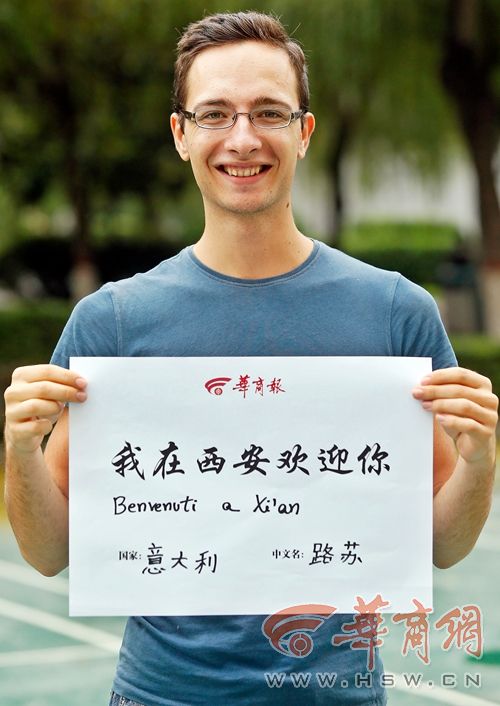 華商報
我在西安欢迎你
Benvenuti a Xi'an
国家: 意大利 中文名: 路苏
華商網
WWW.HSW.CN